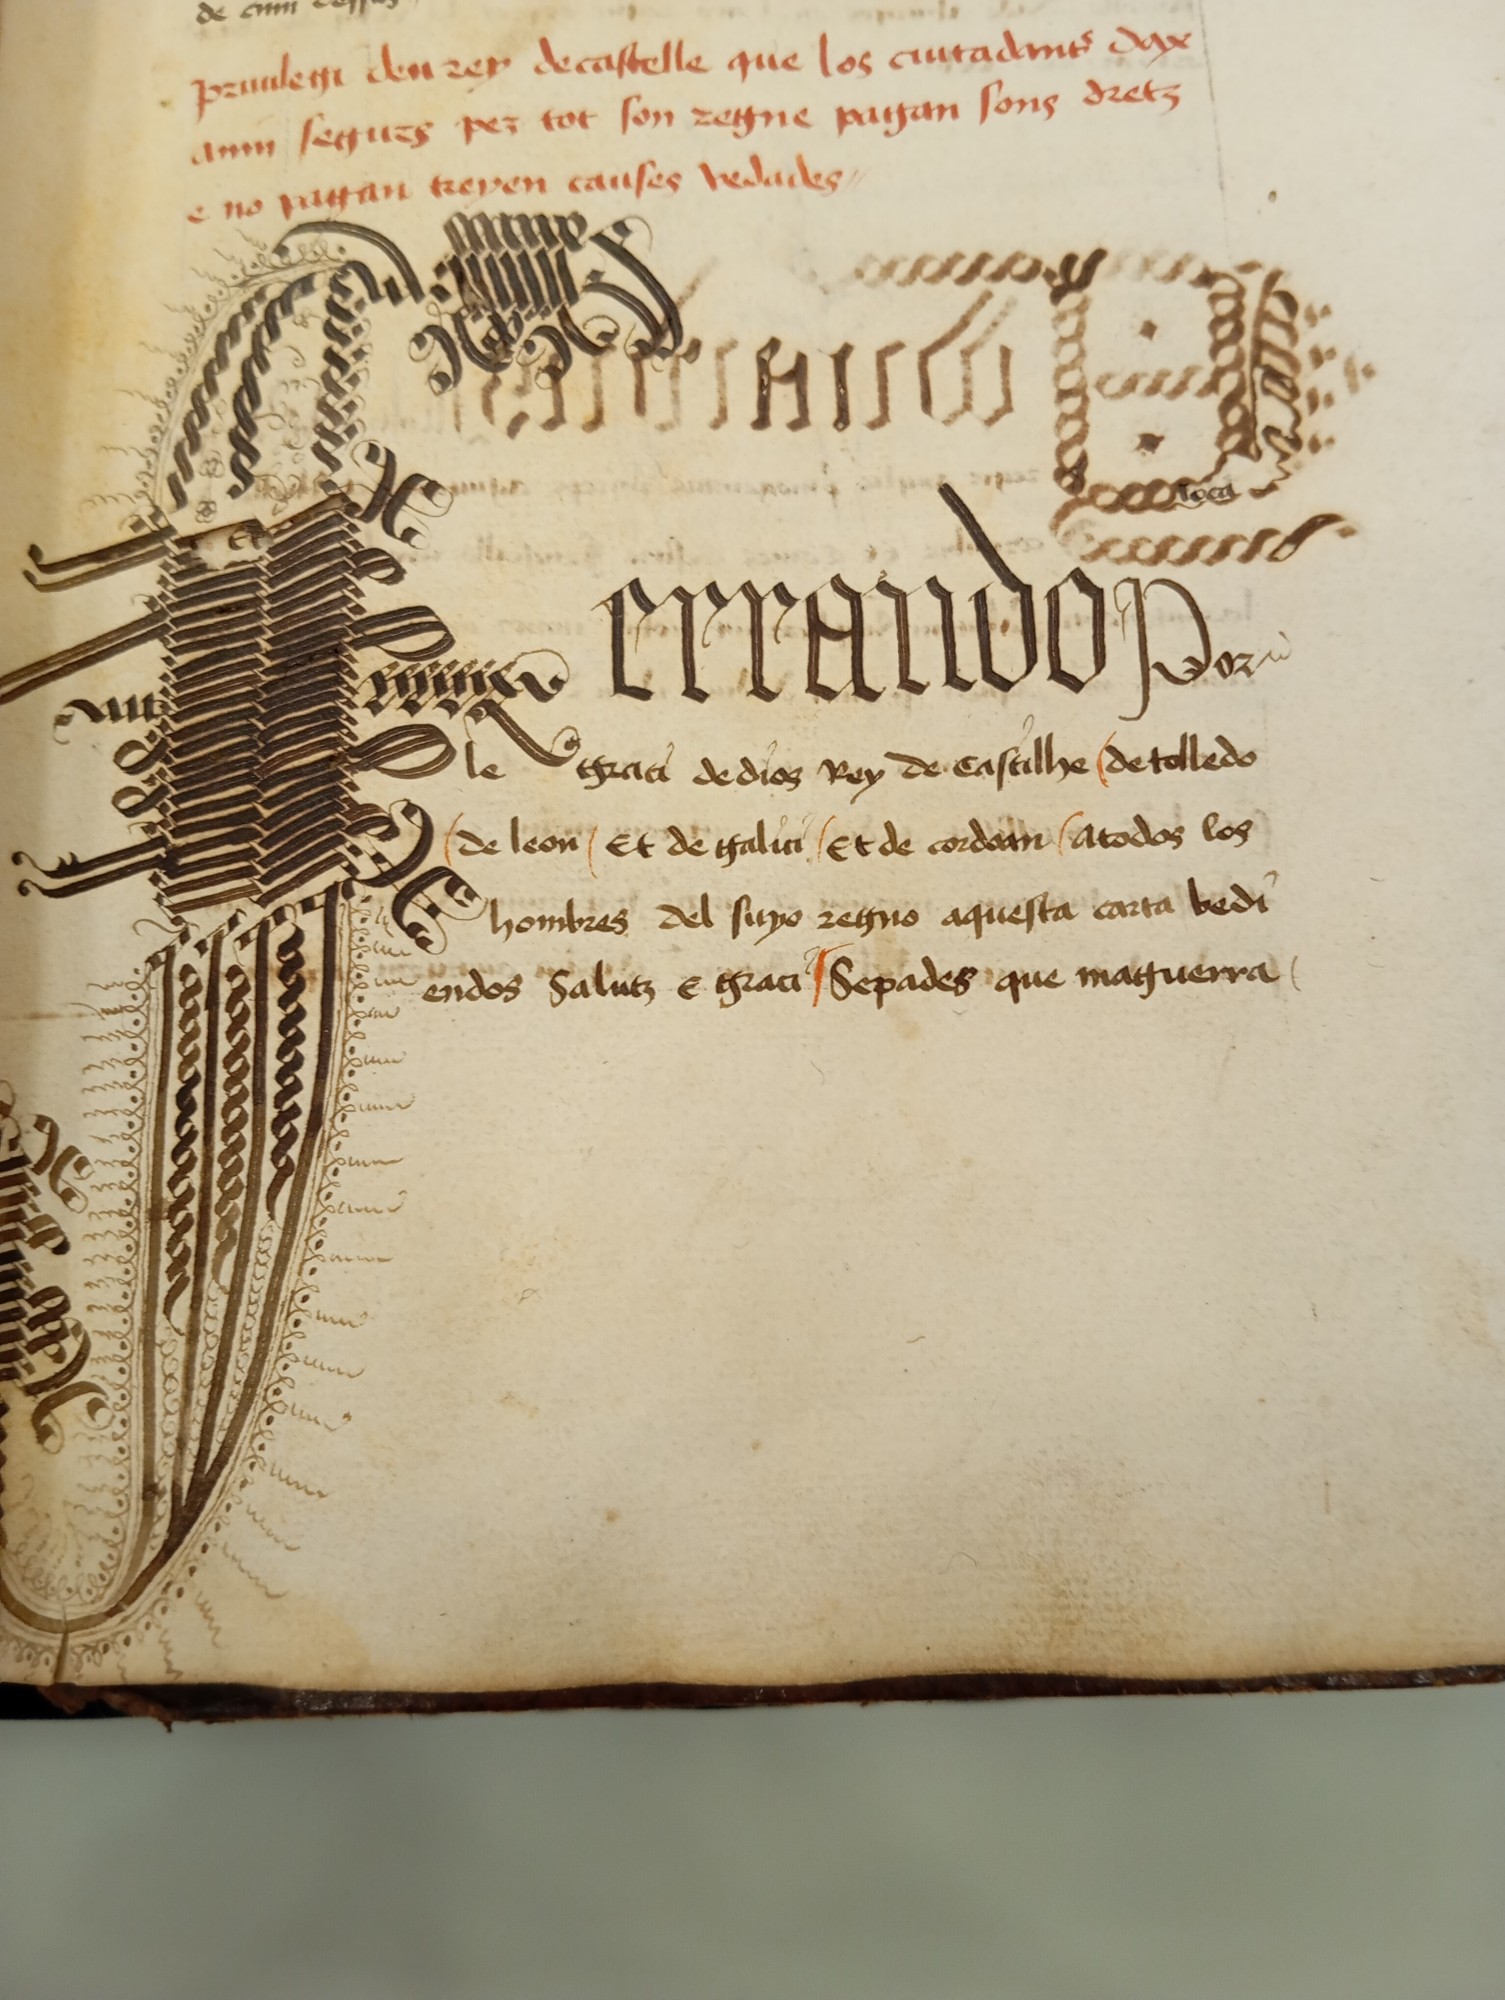 de cum
Priuilegi deu rey de castelle que los ciutadants dax
anin segurs per tot son regne pagan sons dretz
e no pagan treyen causes vedades
Ferrando Por
le graci de dios Rey de Castilhe de tolledo
de leon Et de galici Et de cordoan A todos los
hombres del suyo regno aquesta carta bedi
endos Salutz e graci Sepades que maguerra